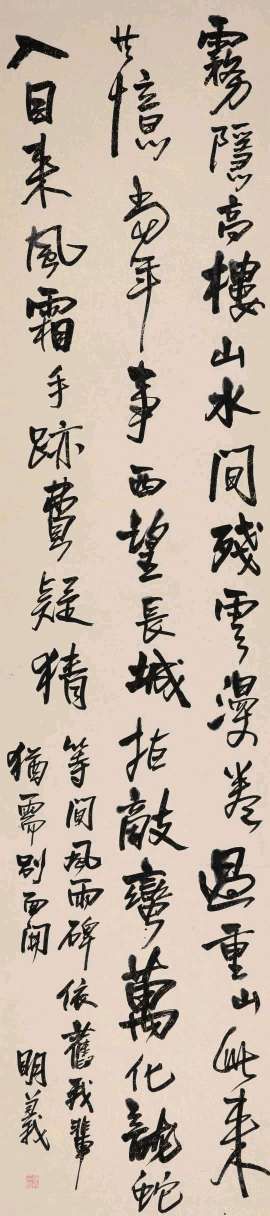 霧隱高樓山水間殘雲漫卷過重山此来
共憶當年事西望長城拒敵蠻萬化龍蛇
入目来風霜手跡費疑猜
等間風雨碑依舊我輩
猶需別面開
明義